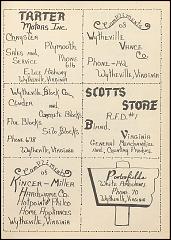 TARTER
MOTORS, INC.
CHRYSLER
PLYMOUTH
SALES AND
SERVICE
PHONE
616
E. LEE HIGHWAY
WYTHEVILLE, VIRGINIA
Compliments
of
WYTHEVILLE
VANCE
CO.
PHONE-142
WYTHEVILLE, VIRGINIA
WYTHEVILLE BLOCK CO.
CINDER
AND
CONCRETE BLOCKS
FLUE BLOCKS
SILO BLOCKS
PHONE 678
WYTHEVILLE, VIRGINIA
SCOTTS
STORE
R.F.D. #1
BLAND,
VIRGINIA
GENERAL MERCHANDISE
AND, COUNTRY PRODUCE
Compliments
of
KINCER-MILLER
HARDWARE CO.
HOTPOINT PHILCO
HOME APPLIANCES
WYTHEVILLE, VIRGINIA
PHONE 70
WYTHEVILLE, VIRGINIA